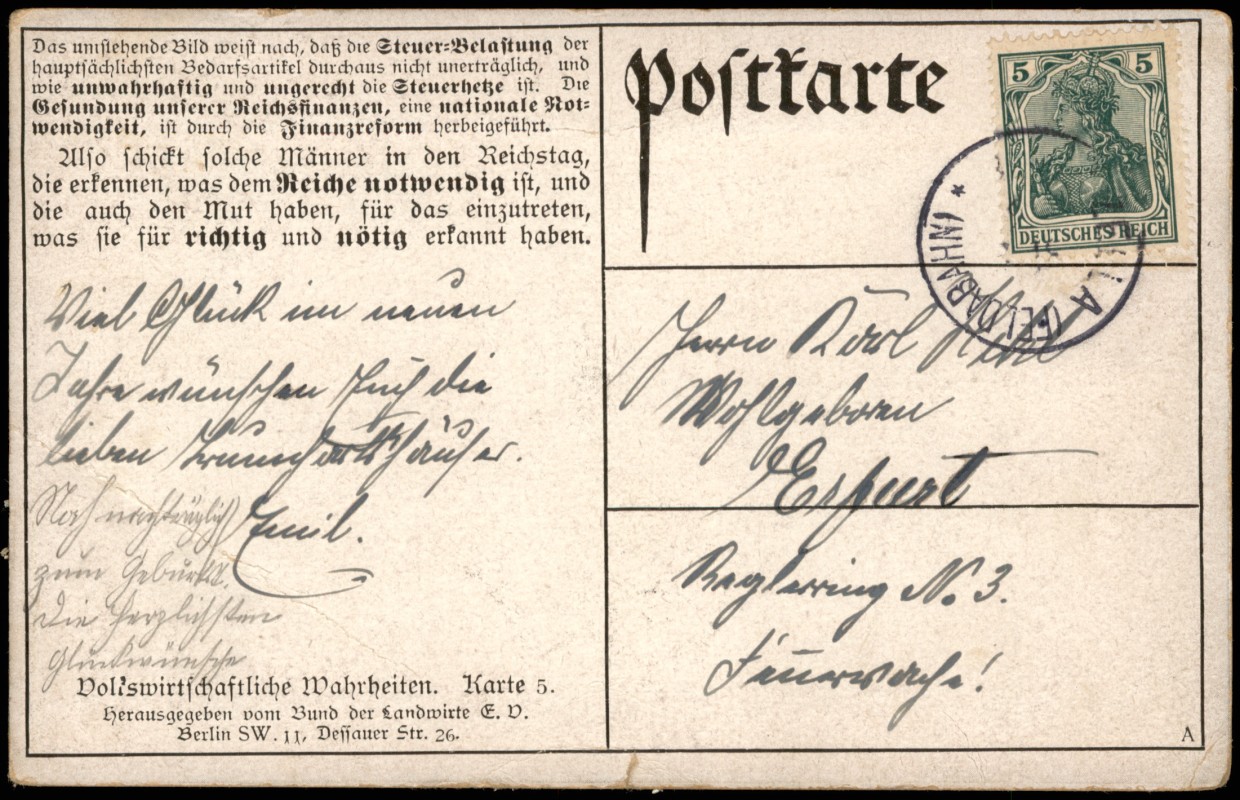 Das umstehende Bild weist nach, daß die Steuer-Belastung der
hauptsächlichsten Bedarfsartikel durchaus nicht unerträglich, und
wie unwahrhaftig und ungerecht die Steuerhetze ist. Die
Gesundung unserer Reichsfinanzen, eine nationale Not-
wendigkeit, ist durch die Finanzreform herbeigeführt.
Also schickt solche Männer in den Reichstag,
die erkennen, was dem Reiche notwendig ist, und
die auch den Mut haben, für das einzutreten,
was sie für richtig und nötig erkannt haben.
Viel Glück im neuen
Jahre wünschen Euch die
lieben
Emil.
Noch nachträglich
zum Geburtst.
die herzlichsten
Glückwünsche
Volkswirtschaftliche Wahrheiten. Karte 5.
Herausgegeben vom Bund der Landwirte E. V.
Berlin SW. 11, Dessauer Str. 26.
Postkarte
5 5
DEUTSCHES REICH
(FELDABAHN) *
Herrn Karl
Wohlgeboren
Erfurt
No. 3.
Feuerwache!
A